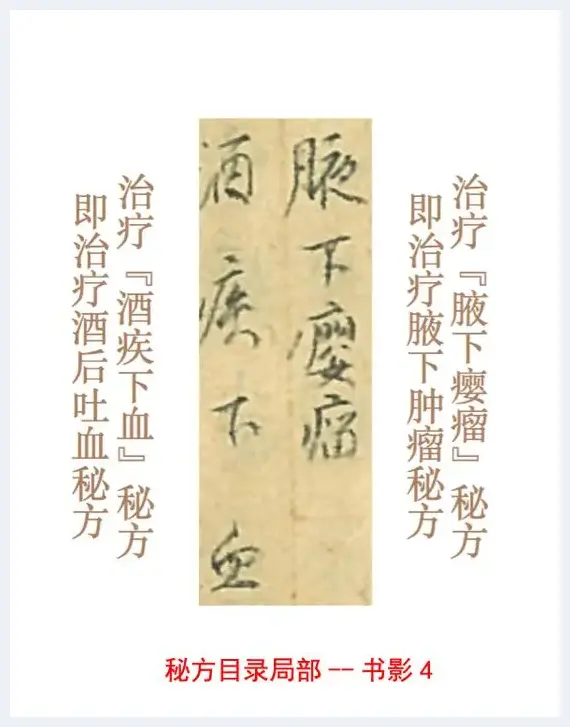 治疗『腋下瘿瘤』秘方
即治疗腋下肿瘤秘方
腋下瘿瘤
酒疾下血
治疗『酒疾下血』秘方
即治疗酒后吐血秘方
秘方目录局部 -- 书影 4